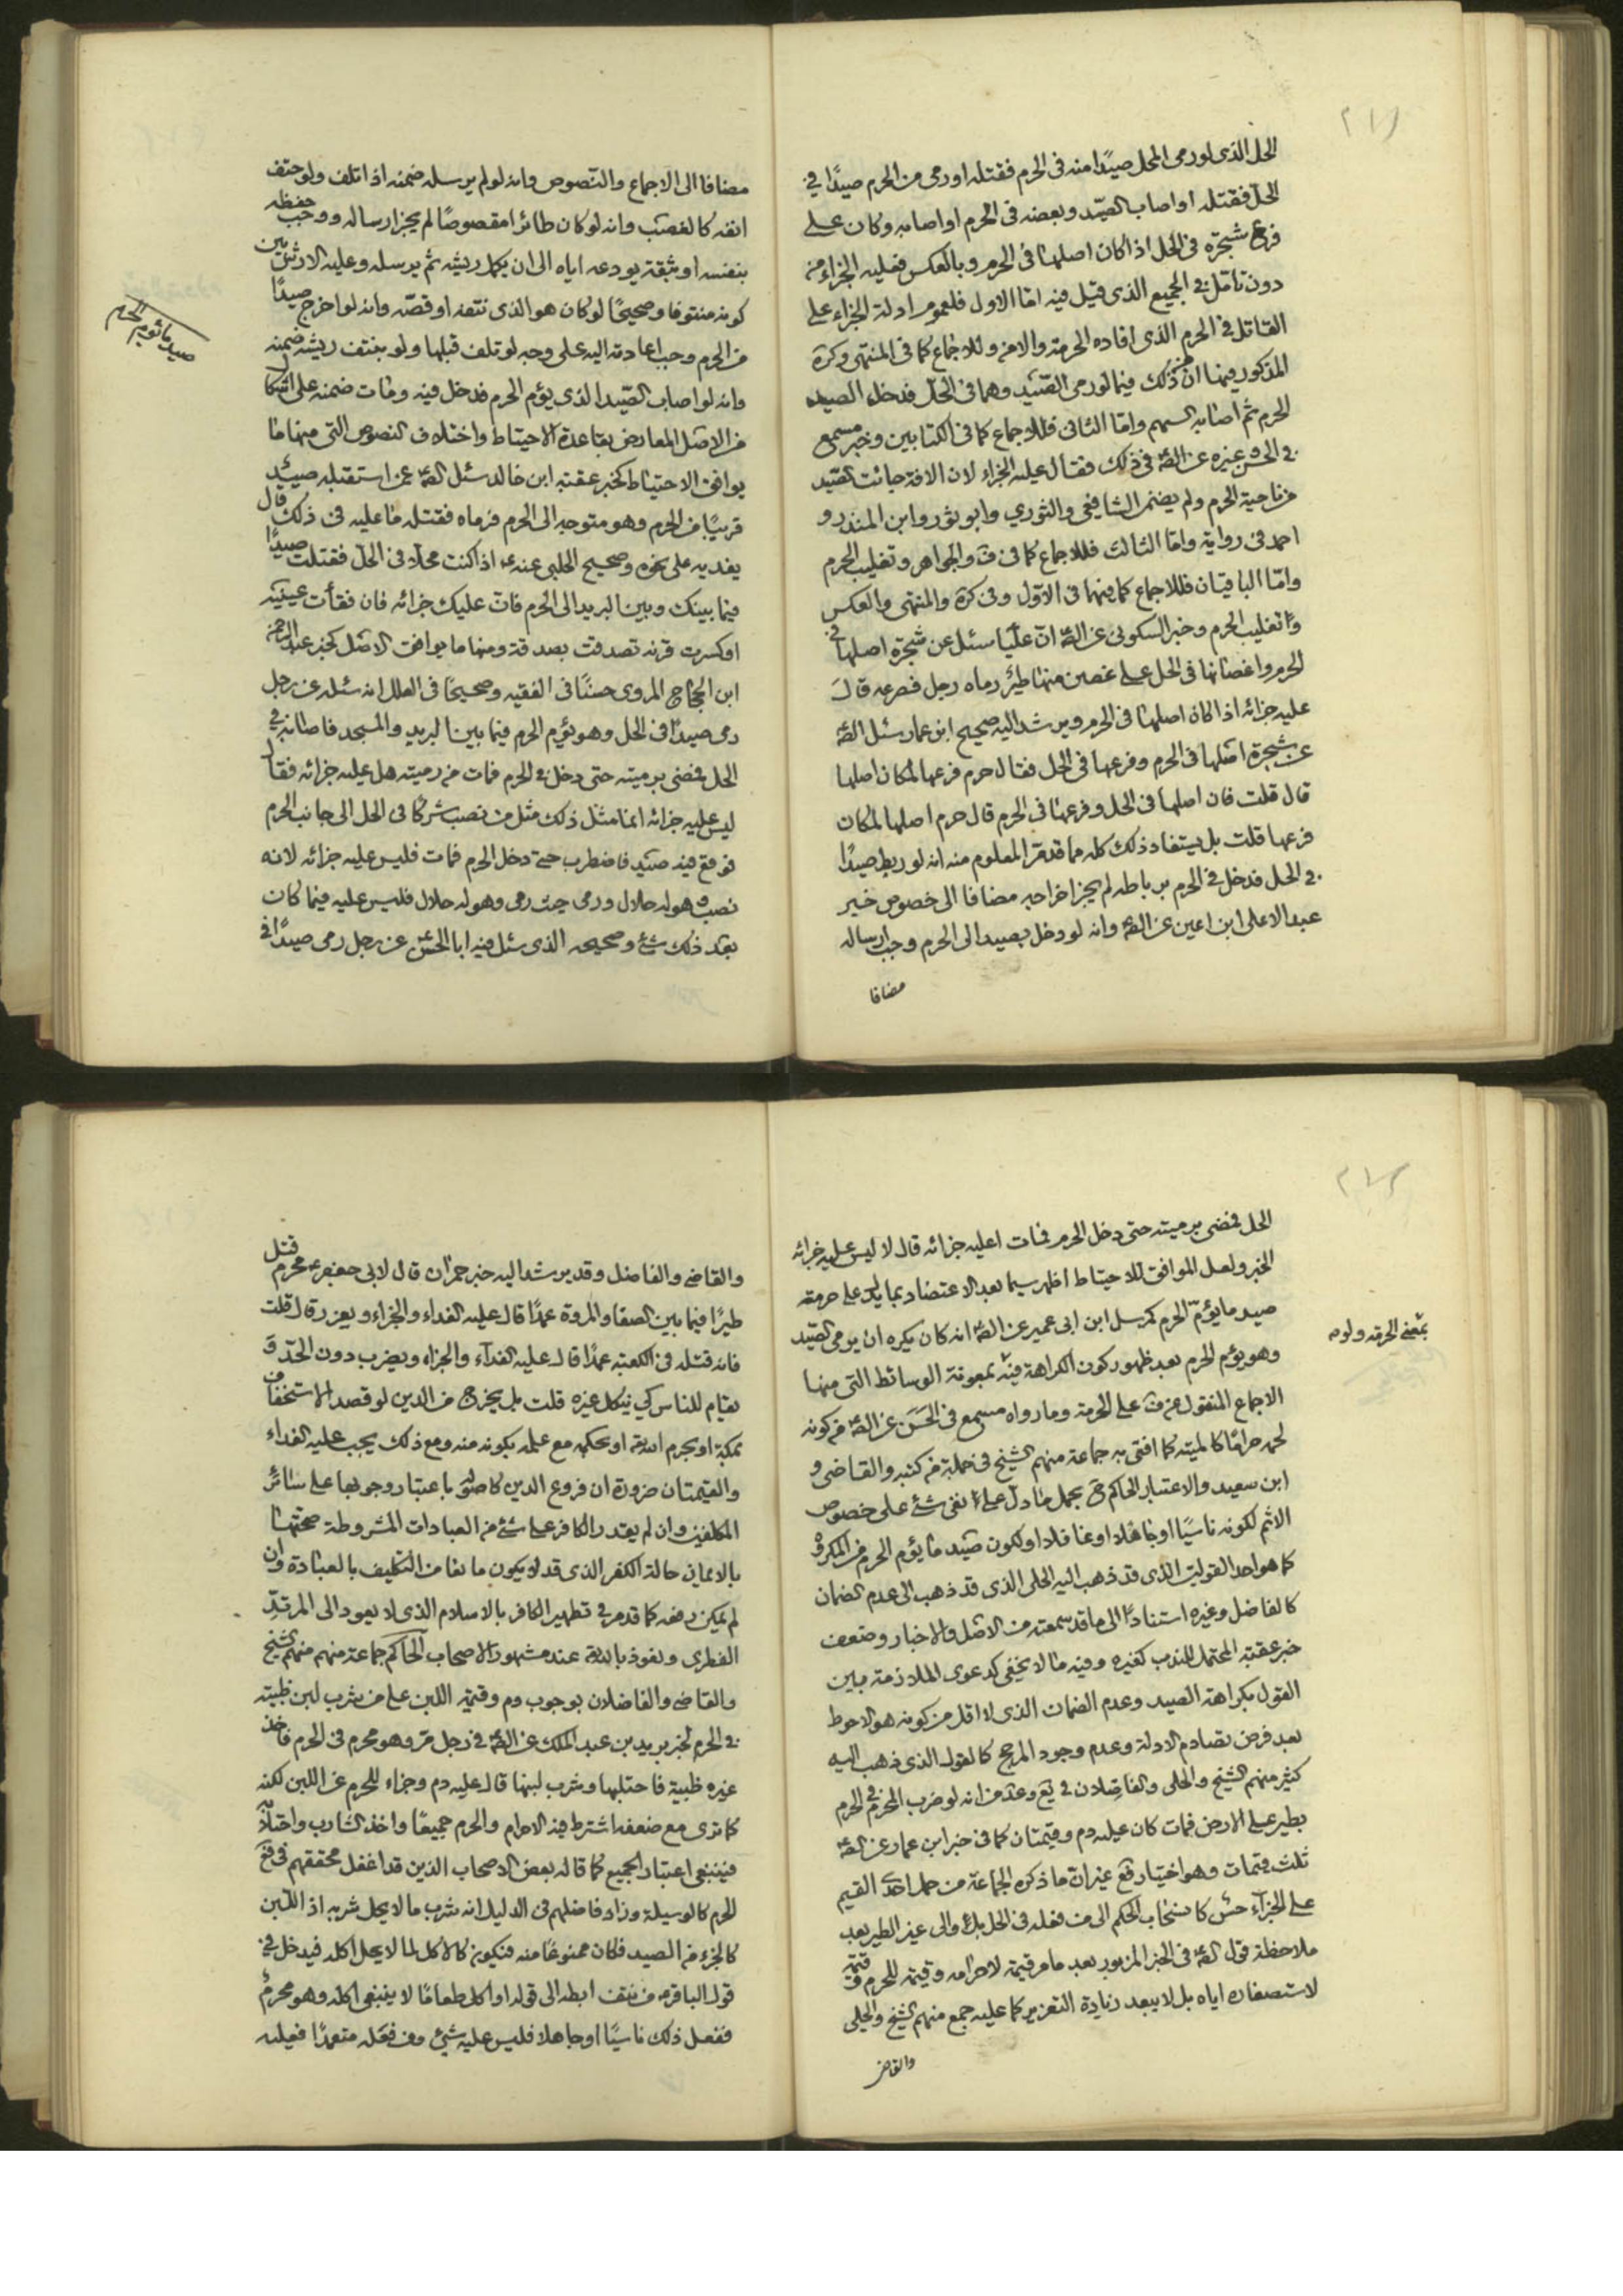 الحل الذی لو رمی المحل صیدًا منه فی الحرم فقتله او رمی من الحرم صیدًا فی
الحل فقتله او اصاب الصید و بعضه فی الحرم او اصابه و کان علی
فرع شجرة فی الحل اذا کان اصلها فی الحرم و بالعکس فعلیه الجزاء من
دون تامل فی الجمیع الذی قیل فیه اما الاول فلعموم ادلة الجزاء علی
القاتل فی الحرم الذی افاده الحرمة والامن و للاجماع کما فی المنتهی و کرة
المذکور فیها ان من ذلک فیما لو رمی الصید وهما فی الحل فدخل الصید
الحرم ثم اصابه السهم واما الثانی فللاجماع کما فی الکتابین وخبر مسمع
فی الحسن وغیره عن الصؑ فی ذلک فقال علیه الجزاء لان الافة جائت الصید
من ناحیة الحرم ولم یضمن الشافعی والثوری وابو ثور وابن المنذر و
احمد فی روایة واما الثالث فللاجماع کما فی ف والجواهر وتغلیب الحرم
واما الباقیان فللاجماع کما فیهما فی الاول وفی کرة والمنتهی والعکس
و تغلیب الحرم وخبر السکونی عن الصؑ ان علیا سئل عن شجرة اصلها فی
الحرم واغصانها فی الحل علی غصن منها طیر رماه رجل فصرعه قال
علیه جزائه اذا کان اصلها فی الحرم ویرشد الیه صحیح ابن عمار سئل الصؑ
عن شجرة اصلها فی الحرم وفرعها فی الحل فقال حرم فرعها لمکان اصلها
قال قلت فان اصلها فی الحل وفرعها فی الحرم قال حرم اصلها لمکان
فرعها قلت بل یستفاد ذلک کله مما قدمر المعلوم منه انه لو ربط صیدًا
فی الحل فدخل فی الحرم برباطه لم یجز اخراجه مضافا الی خصوص خبر
عبد الاعلی ابن اعین عن الصؑ وانه لو دخل بصید الی الحرم وجب ارساله
مضافا
مضافا الی الاجماع والنصوص وانه لو لم یرسله ضمنه اذا تلف ولو حتف
انفه کالغصب وانه لو کان طائرا مقصوصًا لم یجز ارساله ووجب حفظه
بنفسه او بثقة یودعه ایاه الی ان یکمل ریشه ثم یرسله وعلیه الارش بین
کونه منتوفا وصحیحًا لو کان هو الذی نتفه او قصه وانه لو اخرج صیدًا
من الحرم وجب اعادته الیه علی وجه لو تلف قبلها ولو بنتف ریشه ضمنه
صید ما یؤم الحرم
وانه لو اصاب الصید الذی یؤم الحرم فدخل فیه ومات ضمنه علی اشکال
من الاصل المعارض بقاعدة الاحتیاط واختلاف النصوص التی منها ما
یوافق الاحتیاط کخبر عقبة ابن خالد سئل الصؑ عن استقبله صید
قریبًا من الحرم وهو متوجه الی الحرم فرماه فقتله ما علیه فی ذلک قال
یفدیه علی نحوه وصحیح الحلبی عنهؑ اذا کنت محلا فی الحل فقتلت صیدًا
فیما بینک وبین البرید الی الحرم فان علیک جزائه فان فقأت عینه
او کسرت قرنه تصدقت بصدقة ومنها ما یوافق الاصل کخبر عبد الرحمن
ابن الحجاج المروی حسنًا فی الفقیه وصحیحًا فی العلل انه سئله عن رجل
رمی صیدًا فی الحل وهو یؤم الحرم فیما بین البرید والمسجد فاصابه فی
الحل فمضی برمیته حتی دخل فی الحرم فمات من رمیته هل علیه جزائه فقال
لیس علیه جزائه انما مثل ذلک مثل من نصب شرکًا فی الحل الی جانب الحرم
فوقع فیه صید فاضطرب حتی دخل الحرم فمات فلیس علیه جزائه لانه
نصب وهو له حلال ورمی حیث رمی وهو له حلال فلیس علیه فیما کان
بعد ذلک شئ وصحیحه الذی سئل فیه ابا الحسنؑ عن رجل رمی صیدًا فی
الحل فمضی برمیته حتی دخل الحرم فمات اعلیه جزائه قال لا لیس علیه جزائه
الخبر ولعل الموافق للاحتیاط اظهر سیما بعد الاعتضاد بما یدل علی حرمة
صید ما یؤم الحرم کمرسل ابن ابی عمیر عن الصؑ انه کان یکره ان یرمی الصید
بمعنی الحرمة ولو
وهو یؤم الحرم بعد ظهور کون الکراهة فیه بمعونة الوسائط التی منها
الاجماع المنقول عن ف علی الحرمة وما رواه مسمع فی الحسن عن الصؑ من کونه
لحمه حرامًا کالمیتة کما افتی به جماعة منهم الشیخ فی جملة من کتبه والقاضی و
ابن سعید والاعتبار الحاکم یحمل ما دل علی نفی شئ علی خصوص
الاثم لکونه ناسیًا او جاهلا او غافلا او لکون صید ما یؤم الحرم من المکروه
کما هو احد القولین الذی قد ذهب الیه الحلی الذی قد ذهب الی عدم الضمان
کالفاضل وغیره استنادًا الی ما قد سمعته من الاصل والاخبار وضعف
خبر عقبة المحتمل للندب کغیره وفیه ما لا یخفی کدعوی الملازمة بین
القول بکراهة الصید وعدم الضمان الذی لا اقل من کونه هو الاحوط
بعد فرض تصادم الادلة وعدم وجود المرجح کالقول الذی ذهب الیه
کثیر منهم الشیخ والحلی والفاضلان فی یع وعد من انه لو ضرب المحرم فی الحرم
بطیر علی الارض فمات کان علیه دم وقیمتان کما فی خبر ابن عمار عن الصؑ
ثلث قیمات وهو اختیار فع غیر ان ما ذکره الجماعة من حمل احدی القیم
علی الجزاء حسن کانسحاب الحکم الی من فعله فی الحل بل والی غیر الطیر بعد
ملاحظة قول الصؑ فی الخبر المزبور بعد ما مر قیمة لاحرامه وقیمة للحرم وقیمة
لاستصغاره ایاه بل لا یبعد زیادة التعزیر کما علیه جمع منهم الشیخ والحلی
والقاضی
والقاضی والفاضل وقد یرشد الیه خبر حمران قال لابی جعفرؑ محرم قتل
طیرًا فیما بین الصفا والمروة عمدًا قال علیه الفداء والجزاء ویعزر قال قلت
فانه قتله فی الکعبة عمدًا قال علیه الفداء والجزاء ویضرب دون الحد و
یقام للناس کی ینکل غیره قلت بل یخرج من الدین لو قصد الاستخفاف
بمکة او بحرم الله تعالی او بحکمه مع علمه بکونه منه ومع ذلک یجب علیه الفداء
والقیمتان ضرورة ان فروع الدین کاصوله باعتبار وجوبها علی سائر
المکلفین وان لم یقتدر الکافر علی شئ من العبادات المشروطة صحتها
بالایمان حالة الکفر الذی قد لا یکون مانعا من التکلیف بالعبادة وان
لم یمکن رفعه کما قدمر فی تطهیر الکافر بالاسلام الذی لا یعود الی المرتد
الفطری ونعوذ بالله تعالی منه عند مشهور الاصحاب الحاکم جماعة منهم الشیخ
والقاضی والفاضلان بوجوب دم وقیمة اللبن علی من شرب لبن ظبیة
فی الحرم لخبر یزید بن عبد الملک عن الصؑ فی رجل مر وهو محرم فی الحرم فاخذ
عنز ظبیة فاحتلبها وشرب لبنها قال علیه دم وجزاء للحرم عن اللبن لکنه
کما تری مع ضعفه اشترط فیه الاحرام والحرم جمیعًا واخذ الشارب واحتلابه
فینبغی اعتبار الجمیع کما قاله بعض الاصحاب الذین قد اغفل محققهم فی فع
الحرم کالوسیلة وزاد فاضلهم فی الدلیل انه شرب ما لا یحل شربه اذ اللبن
کالجزء من الصید فکان ممنوعًا منه فیکون کالاکل لما لا یحل اکله فیدخل فی
قول الباقرؑ من نتف ابطه الی قوله او اکل طعامًا لا ینبغی اکله وهو محرم
ففعل ذلک ناسیًا او جاهلا فلیس علیه شئ ومن فعله متعمدًا فعلیه